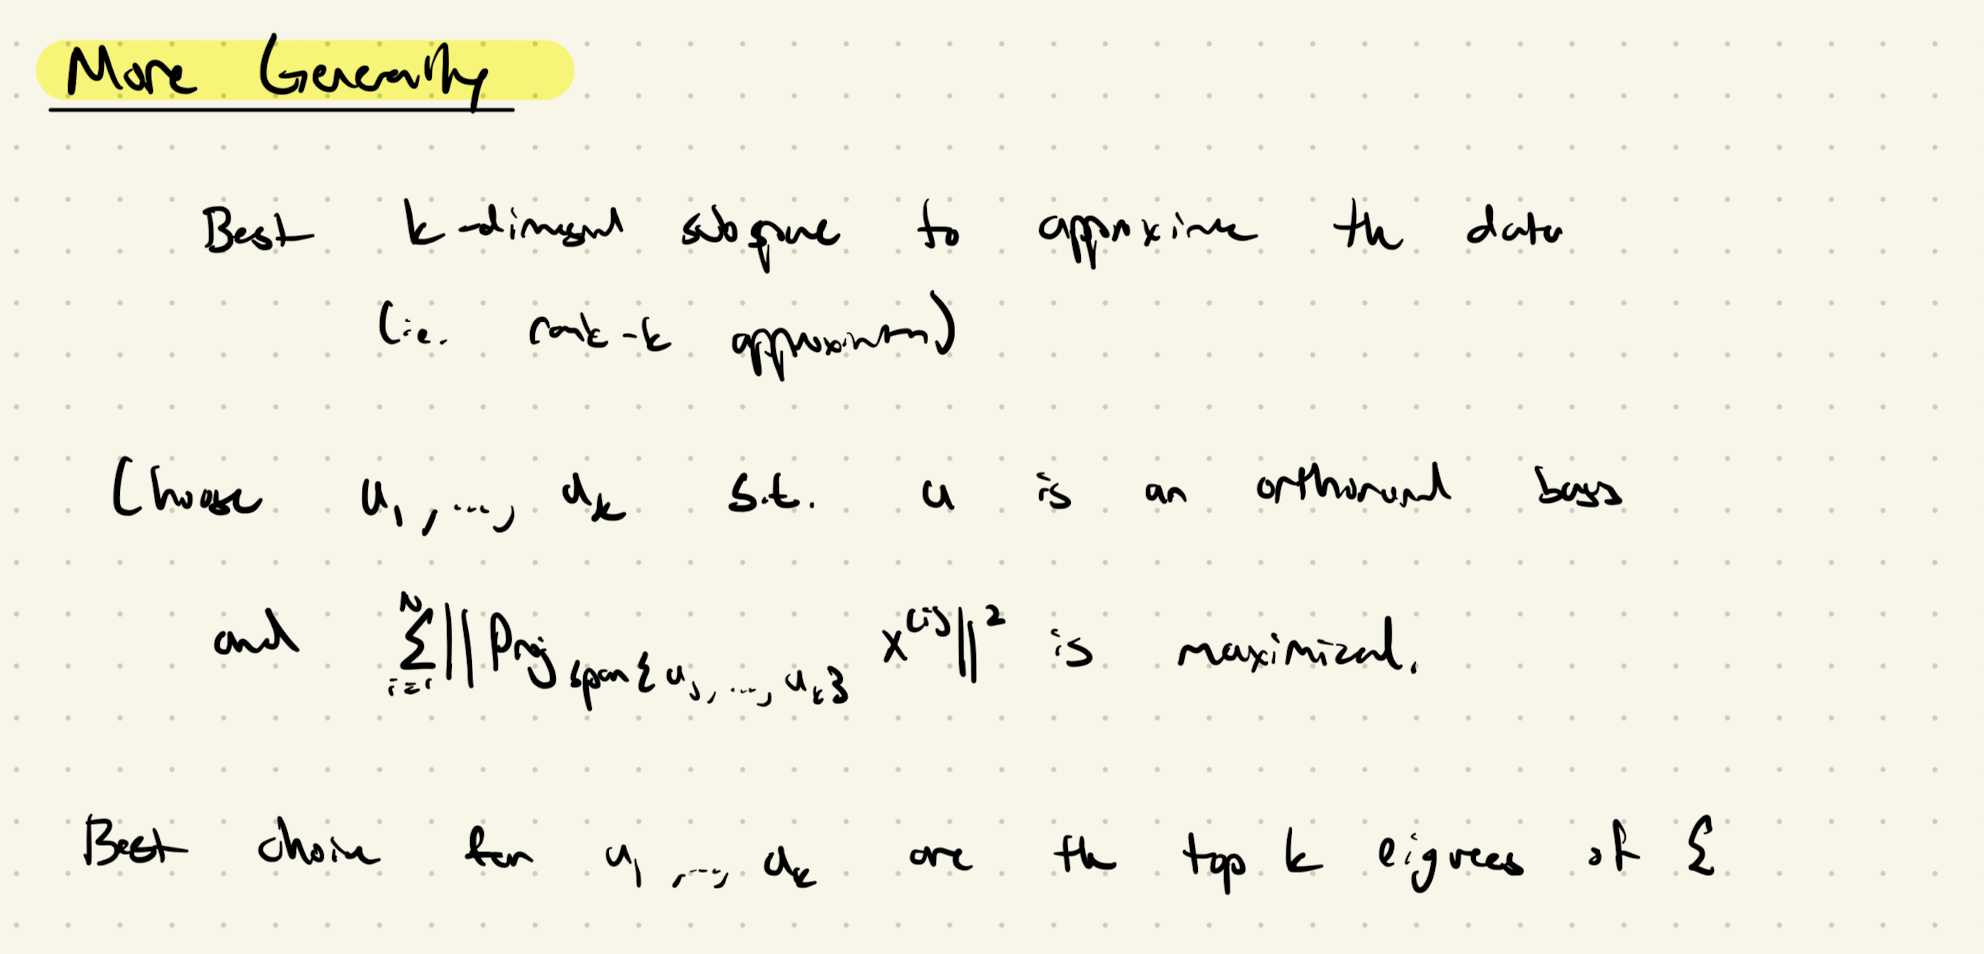 More Generally
Best k-dimensional subspace to approximate the data
(i.e. rank-k approximation)
Choose u₁, ..., uₖ s.t. u is an orthonormal basis
and Σᵢ₌₁ᴺ ||Proj_span{u₁, ..., uₖ} x⁽ⁱ⁾||² is maximized.
Best choice for u₁, ..., uₖ are the top k eigvecs of Σ